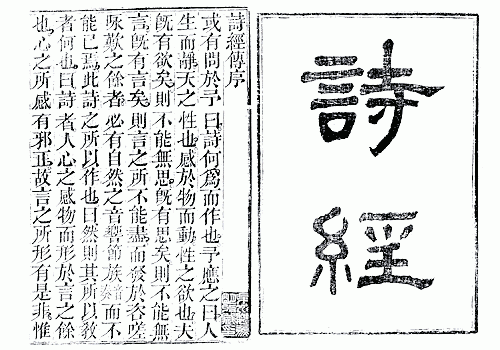 詩經
詩經傳序
或有問於予曰詩何爲而作也予應之曰人
生而靜天之性也感於物而動性之欲也夫
旣有欲矣則不能無思旣有思矣則不能無
言旣有言矣則言之所不能盡而發於咨嗟
咏歎之餘者必有自然之音響節族奏而不
能已焉此詩之所以作也曰然則其所以敎
者何也曰詩者人心之感物而形於言之餘
也心之所感有邪正故言之所形有是非惟